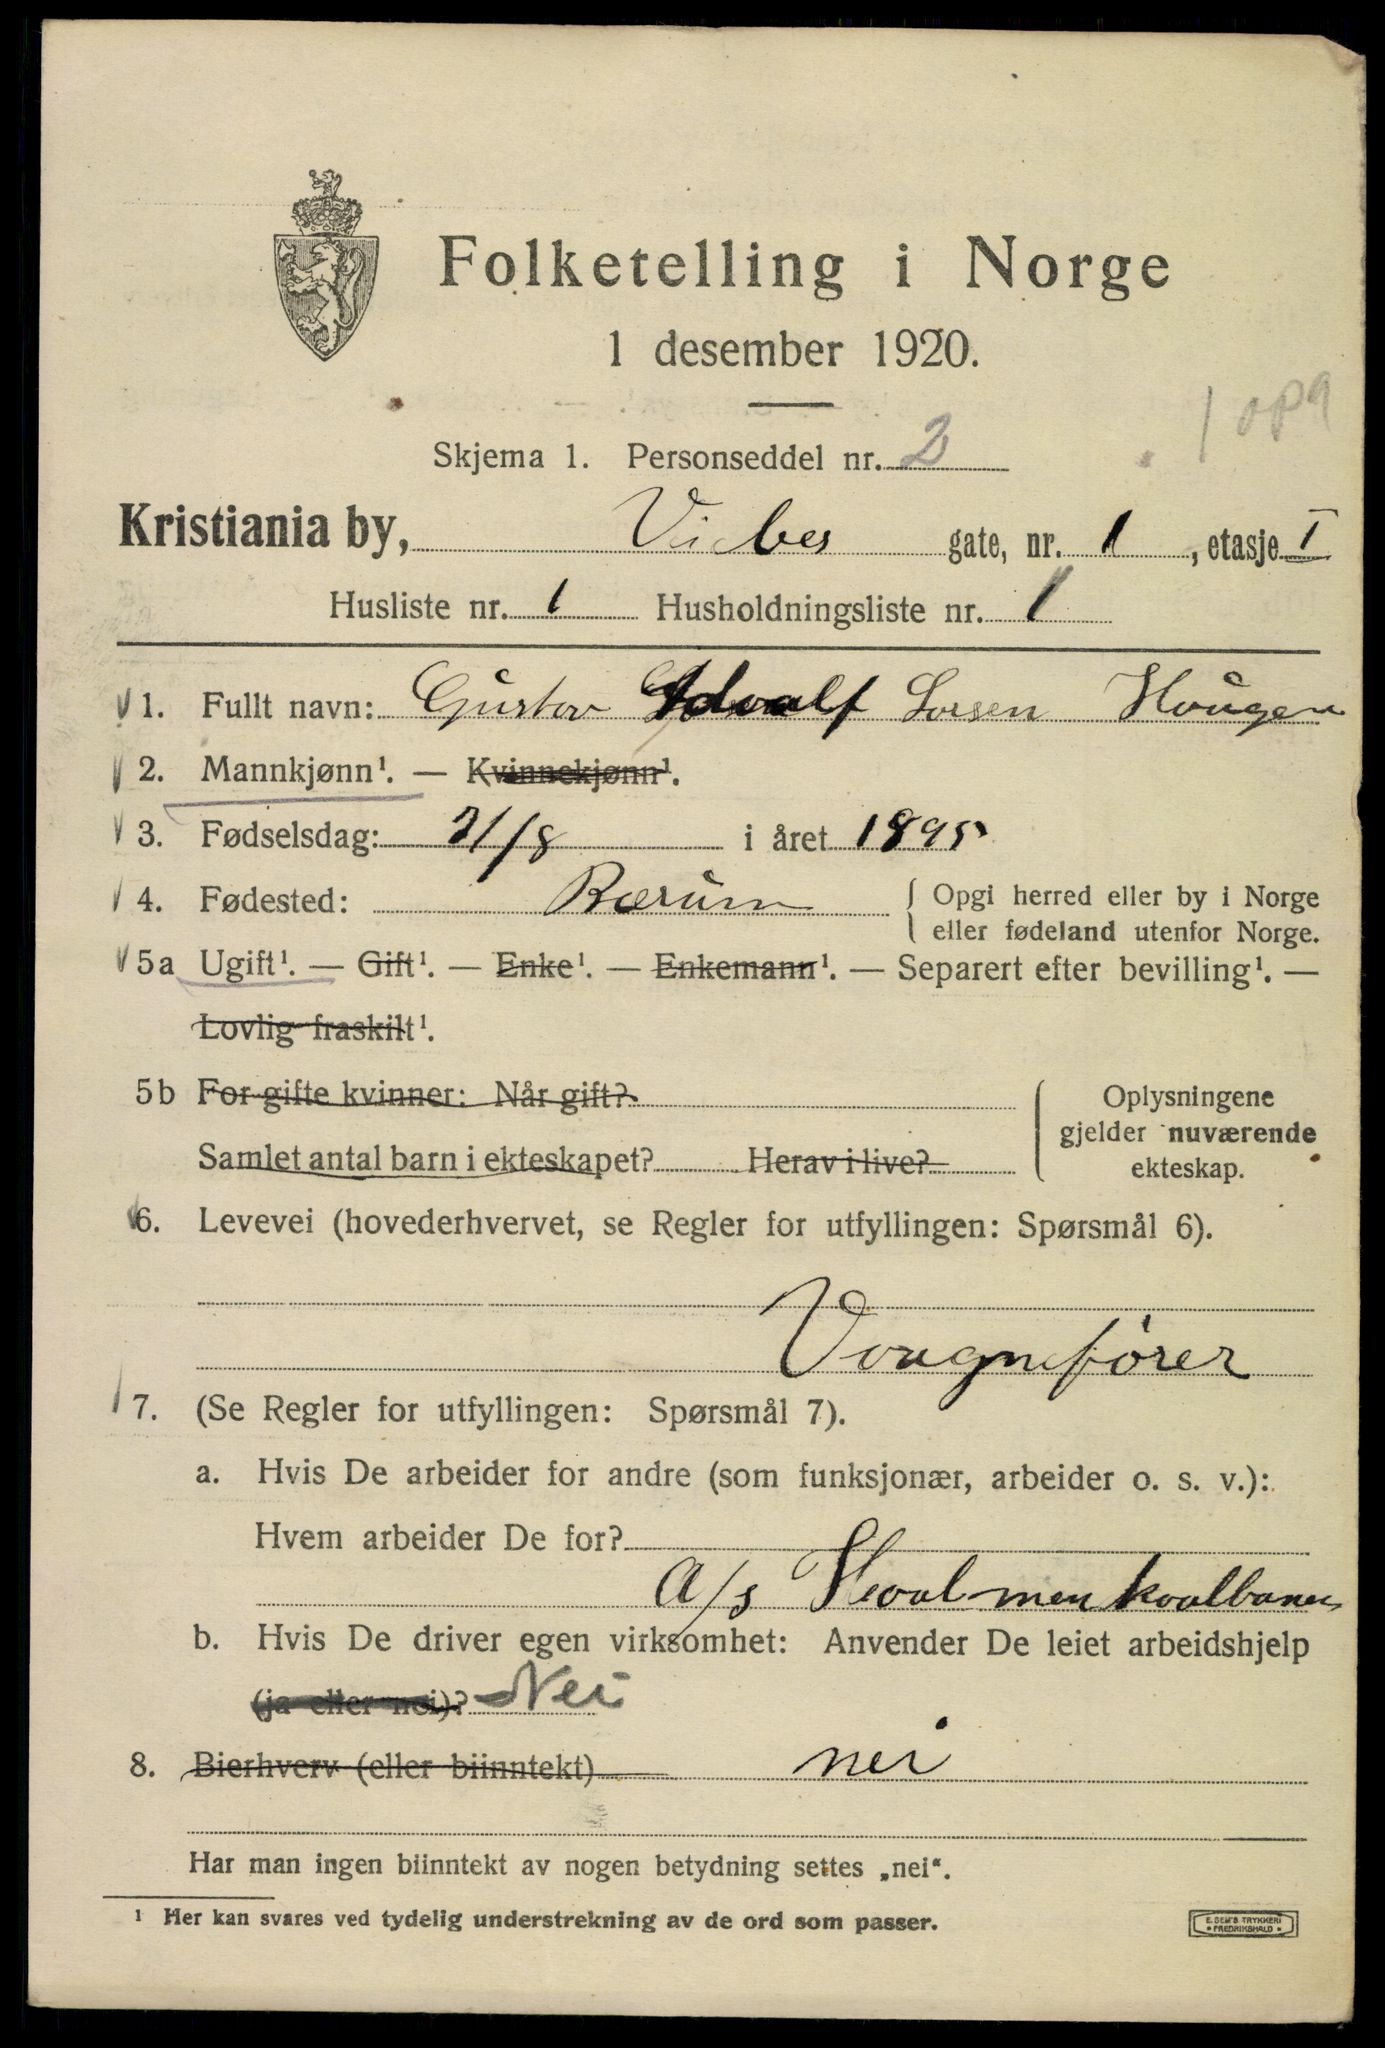 Folketelling i Norge
1 desember 1920.
1 opg
Skjema 1. Personseddel nr. 2
Kristiania by, Vibes gate, nr. 1, etasje I
Husliste nr. 1 Husholdningsliste nr. 1
1. Fullt navn: Gustav Adolf Larsen Haugen
2. Mannkjønn¹. — Kvinnekjønn¹.
3. Fødselsdag: 21/8 i året 1895
4. Fødested: Bærum { Opgi herred eller by i Norge
eller fødeland utenfor Norge.
5a Ugift¹. — Gift¹. — Enke¹. — Enkemann¹. — Separert efter bevilling¹. —
Lovlig fraskilt¹.
5b For gifte kvinner: Når gift? { Oplysningene
gjelder nuværende
Samlet antal barn i ekteskapet? Herav i live? ekteskap.
6. Levevei (hovederhvervet, se Regler for utfyllingen: Spørsmål 6).
Vougnefører
7. (Se Regler for utfyllingen: Spørsmål 7).
a. Hvis De arbeider for andre (som funksjonær, arbeider o. s. v.):
Hvem arbeider De for?
A/s Hoolmenkoolbanen
b. Hvis De driver egen virksomhet: Anvender De leiet arbeidshjelp
(ja eller nei)? Nei
8. Bierhverv (eller biinntekt) nei
Har man ingen biinntekt av nogen betydning settes „nei“.
¹ Her kan svares ved tydelig understrekning av de ord som passer.
E. SEM'S TRYKKERI
• FREDRIKSHALD •